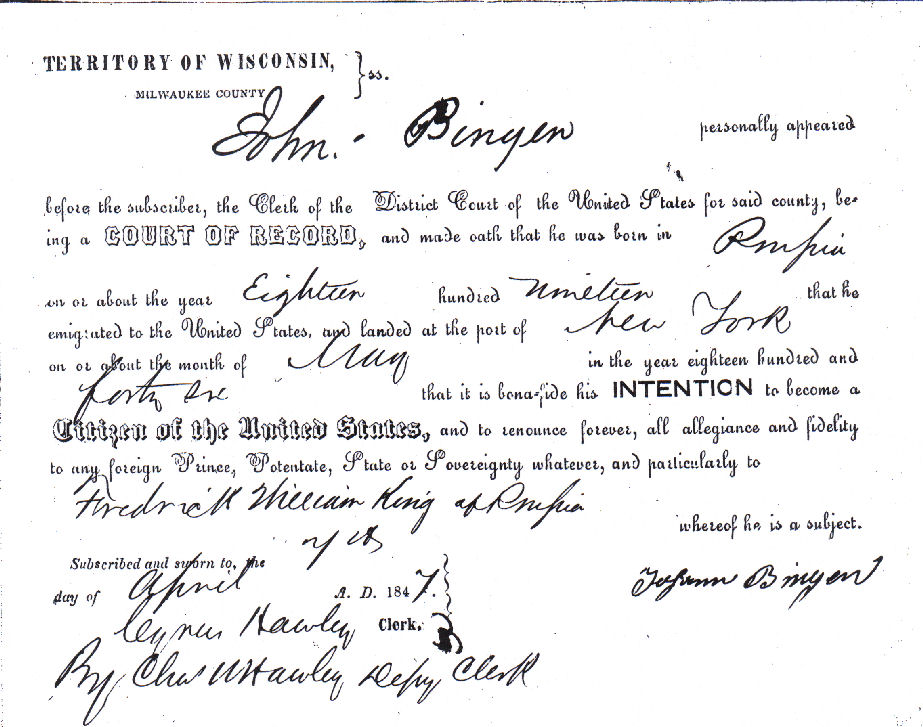 TERRITORY OF WISCONSIN, } ss.
MILWAUKEE COUNTY
John. Binyen personally appeared
before the subscriber, the Clerk of the District Court of the United States for said county, be-
ing a COURT OF RECORD, and made oath that he was born in Prussia
on or about the year Eighteen hundred Nineteen that he
emigrated to the United States, and landed at the port of New York
on or about the month of May in the year eighteen hundred and
forty six that it is bona-fide his INTENTION to become a
Citizen of the United States, and to renounce forever, all allegiance and fidelity
to any foreign Prince, Potentate, State or Sovereignty whatever, and particularly to
Fredrick William King of Prussia
whereof he is a subject.
Subscribed and sworn to, the 7th
day of April A. D. 1847.
Johann Binyen
Cyrus Hawley Clerk,
By Chas Hawley Depy Clerk